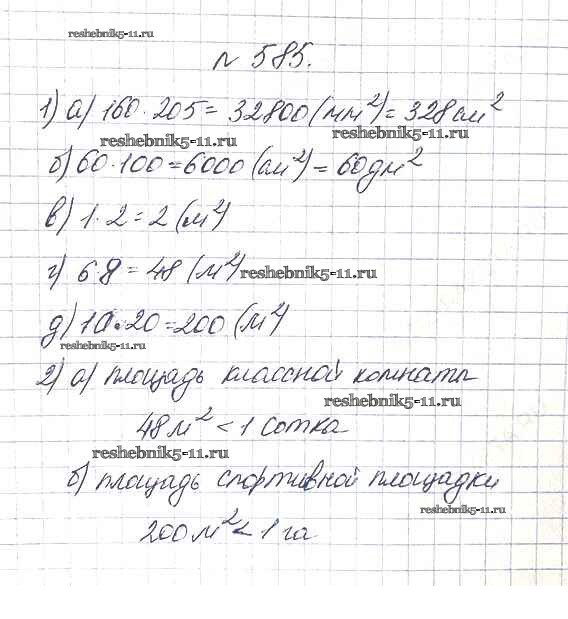 reshebnik5-11.ru
№ 585.
1) а) 160 · 205 = 32800 (мм²) = 328 см²
reshebnik5-11.ru reshebnik5-11.ru
б) 60 · 100 = 6000 (см²) = 60 дм²
в) 1 · 2 = 2 (м²)
г) 6 · 8 = 48 (м²) reshebnik5-11.ru
д) 10 · 20 = 200 (м²)
reshebnik5-11.ru
2) а) площадь классной комнаты
reshebnik5-11.ru
48 м² < 1 сотка
reshebnik5-11.ru
б) площадь спортивной площадки
reshebnik5-11.ru
200 м² < 1 га